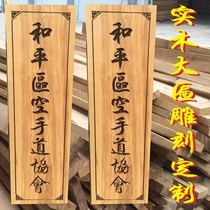 和平區空手道協會
和平區空手道協會
实木大匾雕刻定制